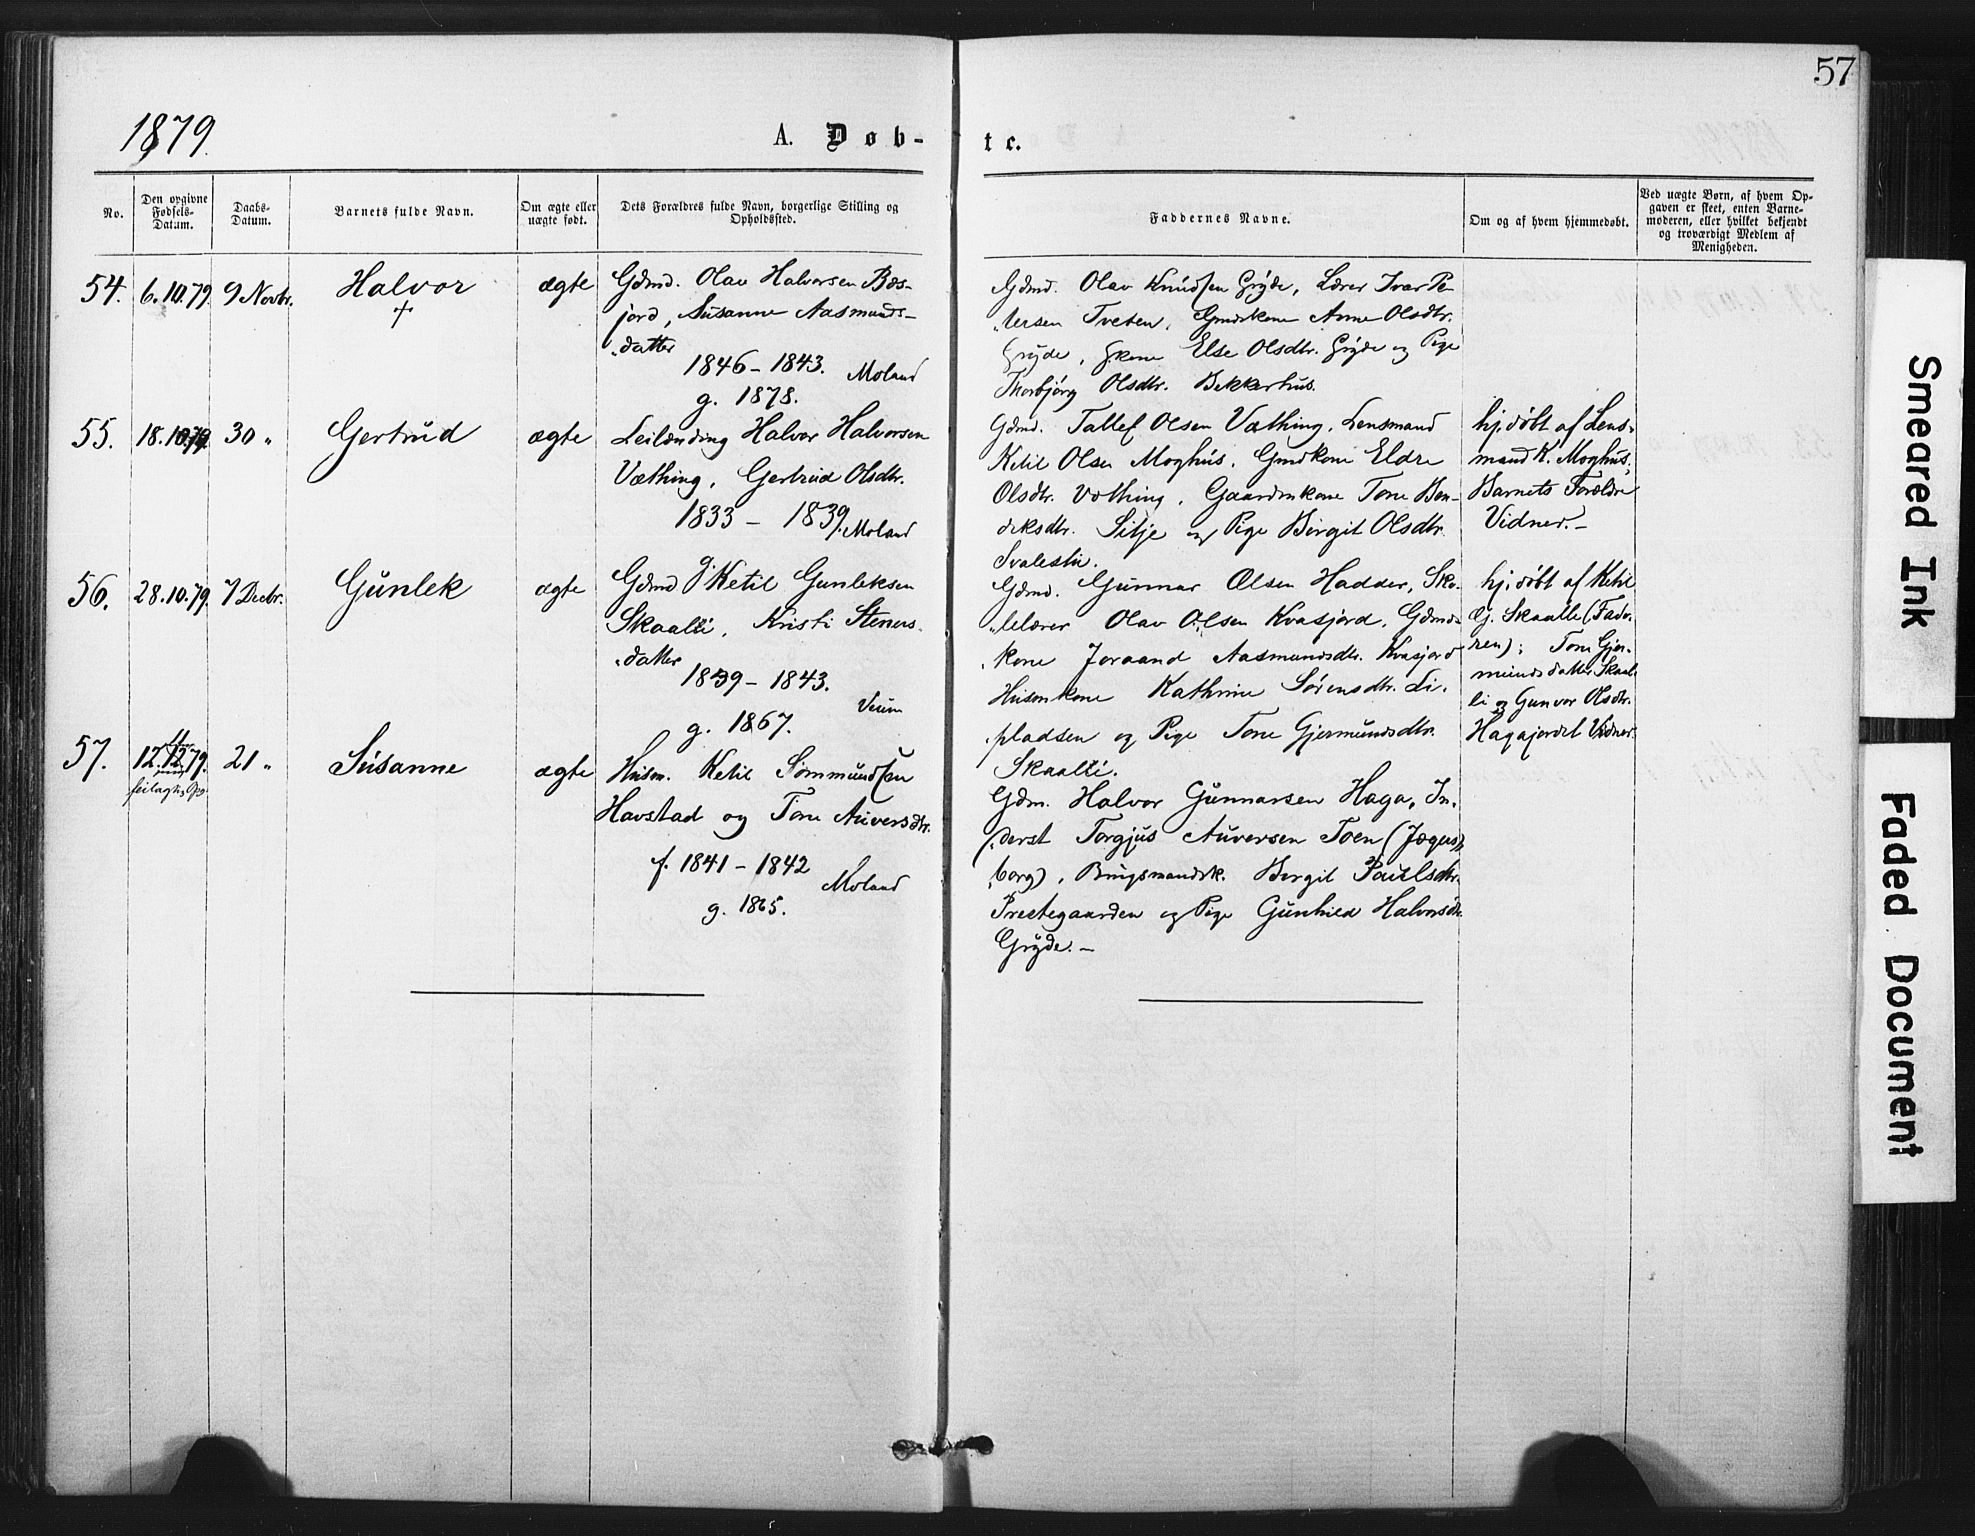 57
1879.
A. Døb-
te.
No.
Den opgivne Fødsels-Datum.
Daabs-Datum.
Barnets fulde Navn.
Om ægte eller uægte født.
Dets Forældres fulde Navn, borgerlige Stilling og Opholdssted.
Faddernes Navne.
Om og af hvem hjemmedøbt.
Ved uægte Børn, af hvem Op-
gaven er skeet, enten Barne-
moderen, eller hvilket bekjendt
og troværdigt Medlem af
Menigheden.
54. 6.10.79. 9 Novbr. Halvor ægte
+
Gdmd. Olav Halvorsen Bæs-
jord, Susanne Aasmunds-
datter
1846 - 1843. Moland
g. 1878.
Gdmd. Olav Knudsen Gryde, Lærer Ivar Pe-
tersen Tveten, Gmdskone Anne Olsdtr.
Gryde, Gkone Else Olsdtr. Gryde og Pige
Thorbjørg Olsdtr. Bekkerhus.
55. 18.10.79. 30 " Gertrud ægte
Leilænding Halvor Halvorsen
Væthing, Gertrud Olsdtr.
1833 - 1839. Moland
Gdmd. Tallef Olsen Væthing, Lensmand
Ketil Olsen Moghus, Gmdkone Eldre
Olsdtr. Vothing, Gaardmkone Tone Ben-
diksdtr. Silje og Pige Birgit Olsdtr.
Svalestu.
hj. døbt af Lens-
mand K. Moghus;
Barnets Forældre
Vidner. -
56. 28.10.79. 7 Decbr. Gunlek ægte
Gdmd Ketil Gunleksen
Skaalli, Kristi Steners-
datter
1839 - 1843.
Veum
g. 1867.
Gdmd. Gunnar Olsen Hadder, Sko-
lelærer Olav Olsen Kvasjord, Gdmds-
kone Joraand Aasmundsdtr. Kvasjord
Husmkone Kathrine Sørensdtr. Li-
pladsen og Pige Tone Gjermundsdtr.
Skaalli.
hj. døbt af Ketil
G. Skaalli (Fade-
ren); Tone Gjer-
mundsdatter Skaal-
li og Gunvor Olsdtr.
Hagajordet Vidner.
57. 12.12.79. 21 " Susanne ægte
Husm. Ketil Sommundsen
Havstad og Tone Auversdtr.
f. 1841 - 1842
Moland
g. 1865.
Gdm. Halvor Gunnarsen Haga, In-
derst Torgjus Auversen Toen (Jægers-
borg), Birgit Paulsdtr.
Prestegaarden og Pige Gunhild Halvorsdtr.
Gryde. -
Smeared Ink
Faded Document